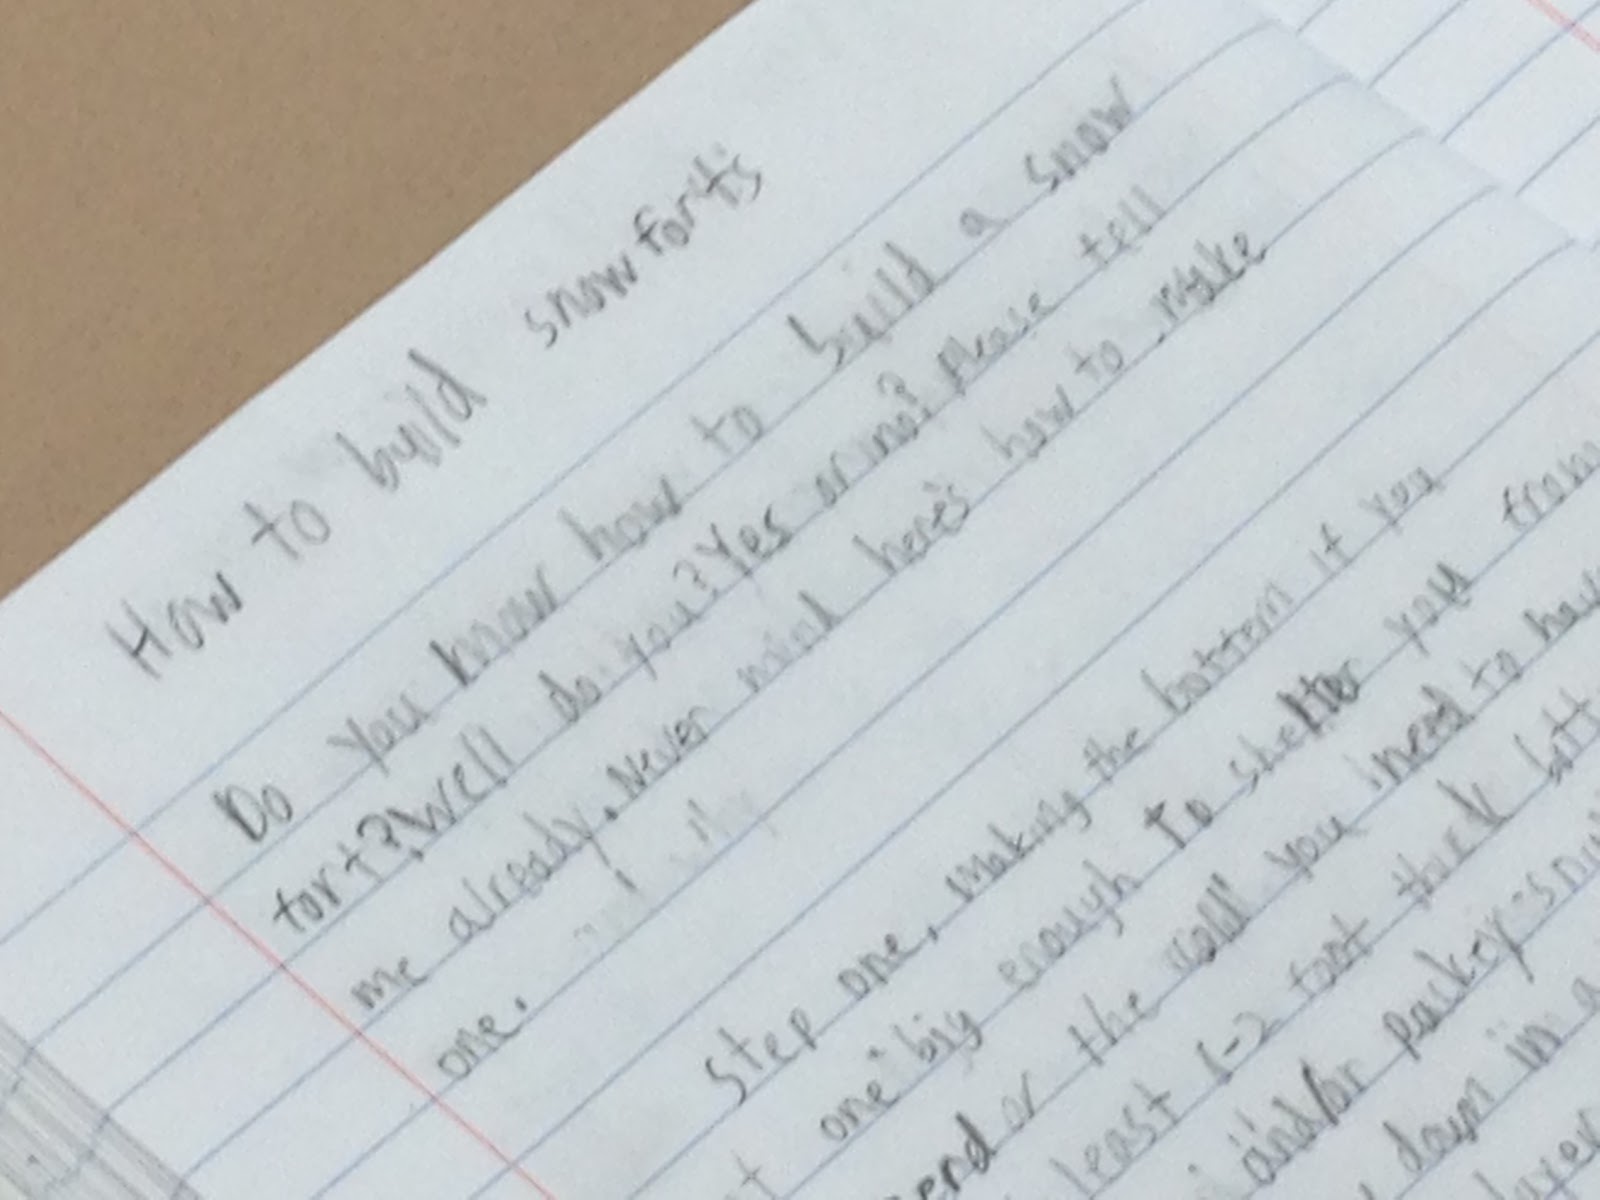 How to build snow forts
Do you know how to build a snow
fort? Well do you? Yes or no? please tell
me already. Never mind here's how to make
one.
Step one, making the bottem if you
one big enough To shelter you from
end or the wall you need to have
least 1-2 foot thick
and/or packey
down in a
layer